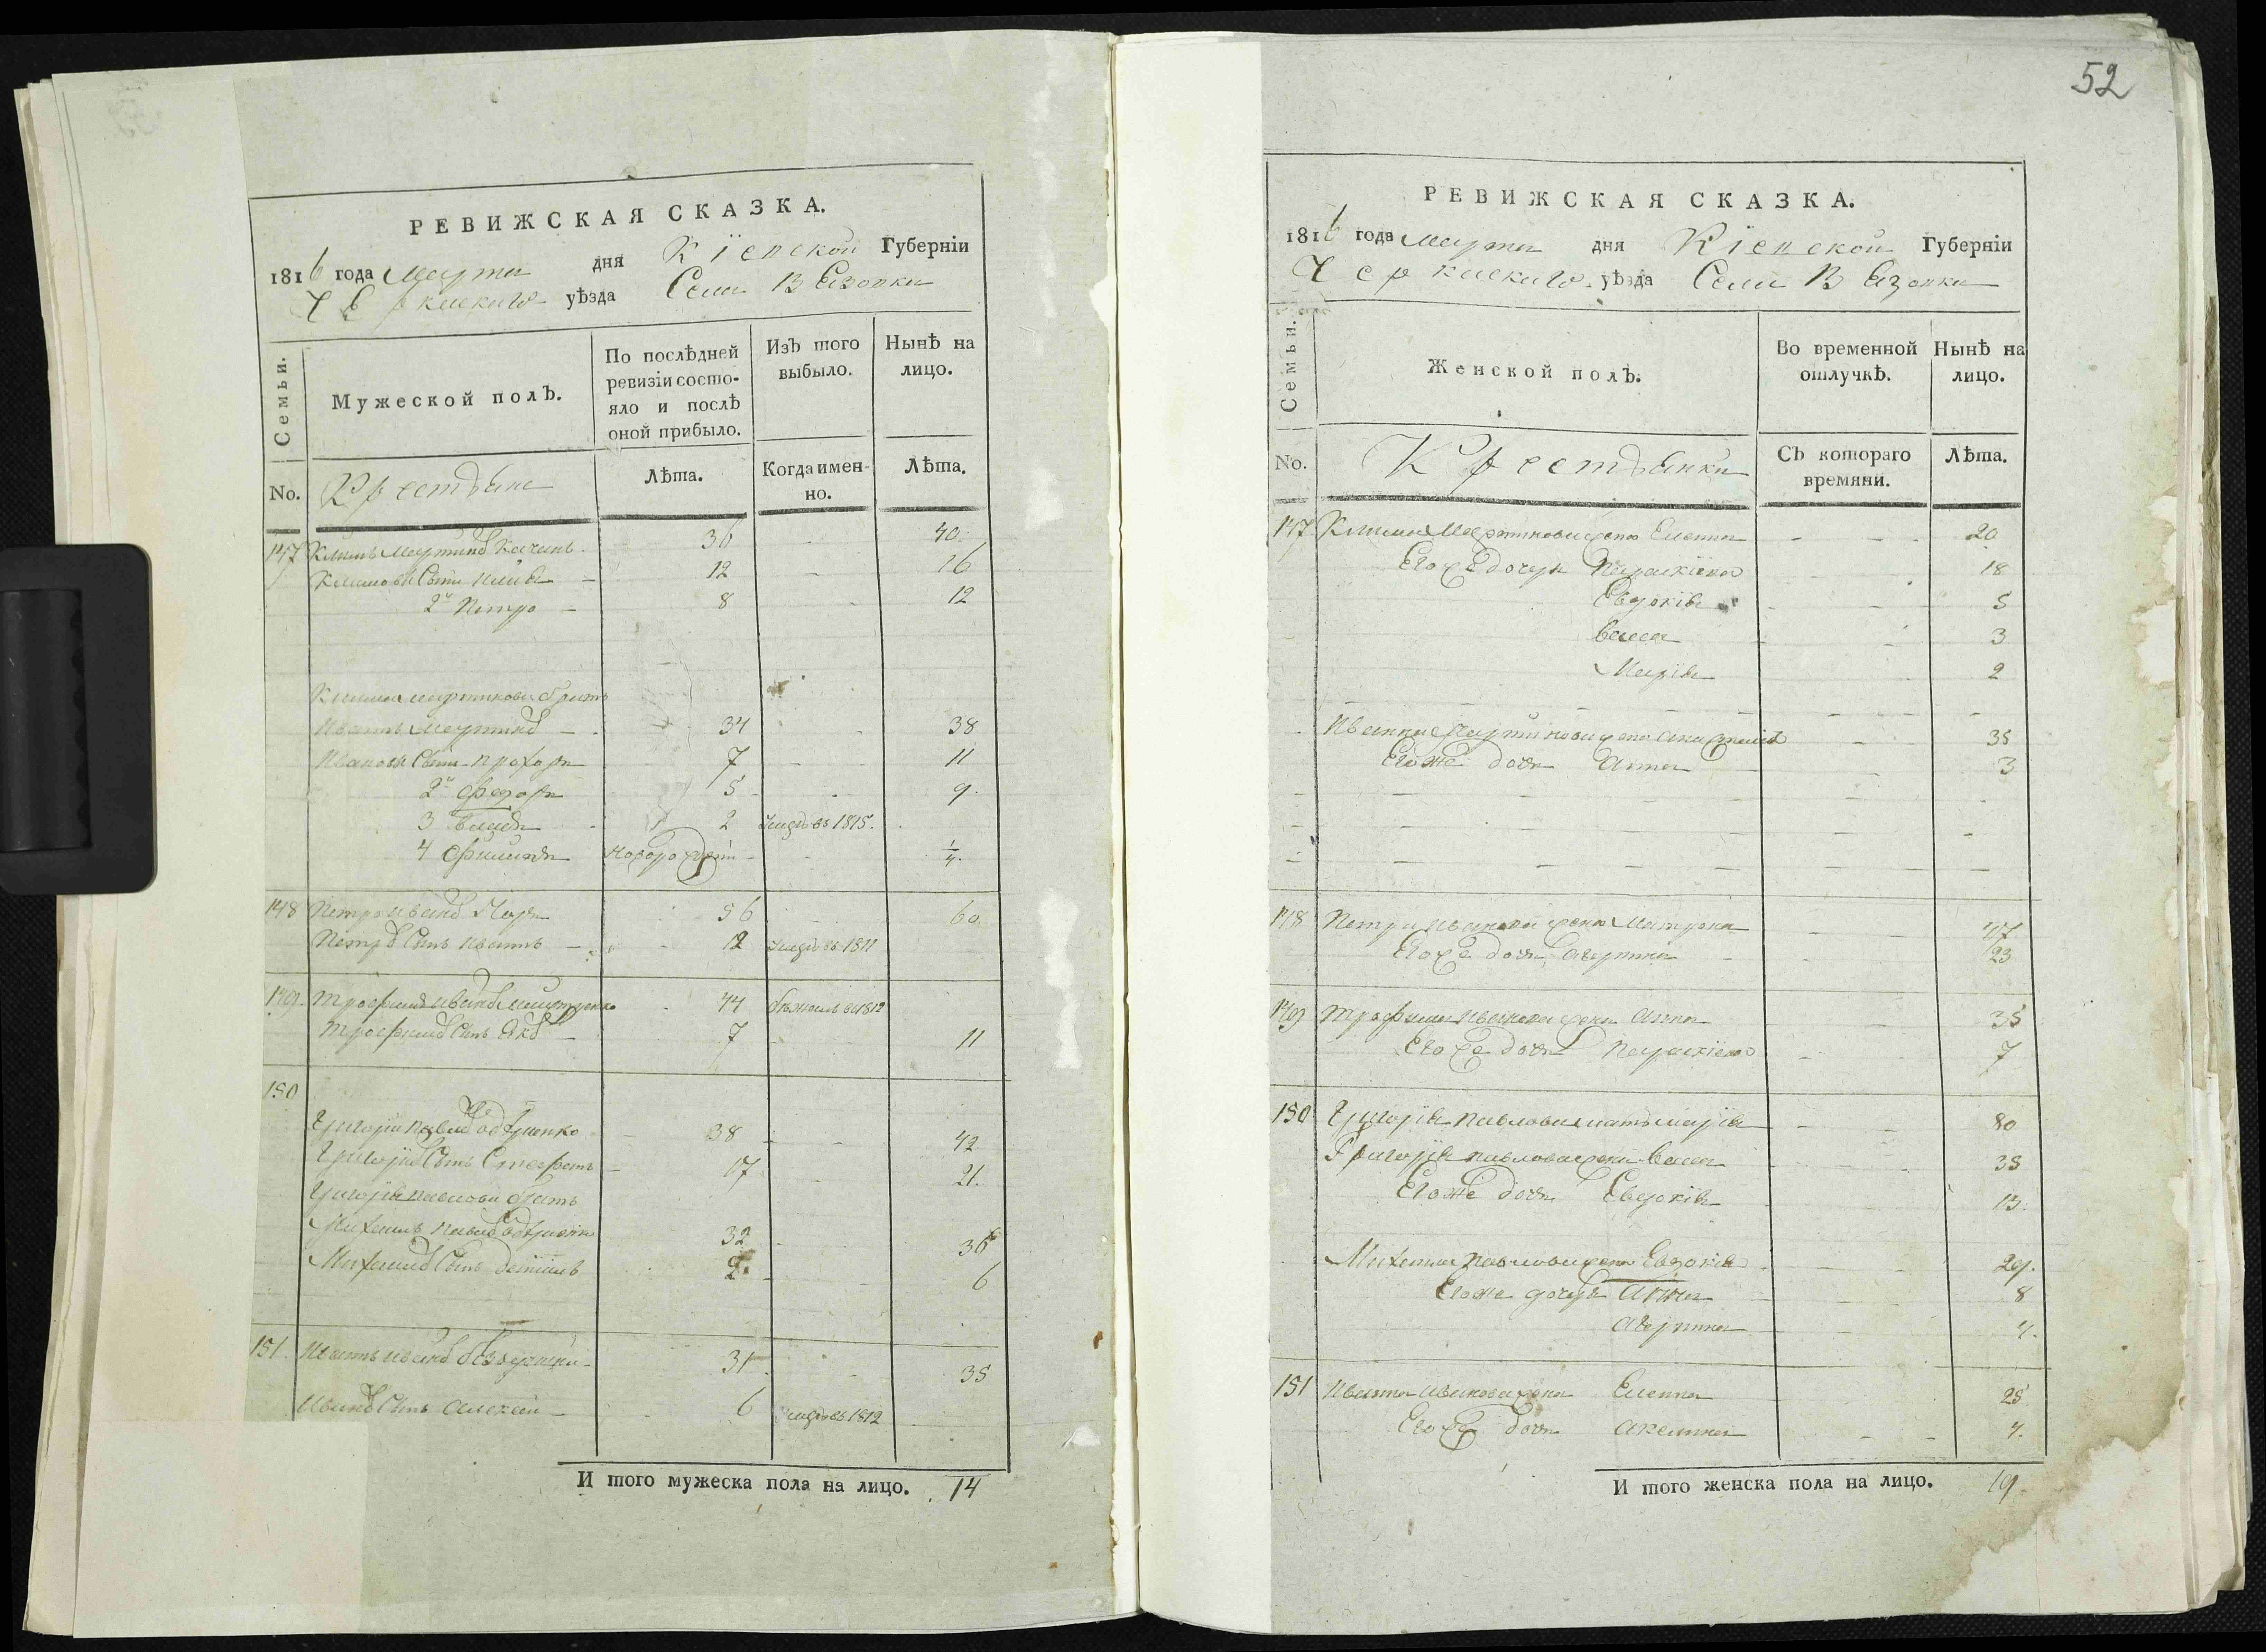 52
РЕВИЖСКАЯ СКАЗКА.
1816 года Марта дня Кіевской Губерніи
Черкаскаго уѣзда Села Вязовка
Семьи.
Мужеской полъ.
По послѣдней ревизіи состо-
яло и послѣ
оной прибыло.
Изъ того
выбыло.
Нынѣ на
лицо.
No.
Крестьяне
Лѣта.
Когда имен-
но.
Лѣта.
147 Климъ Мартиновъ 36 - 40
Климовы Сыны Илія 12 - 16
2й Петро 8 - 12
Клима Мартинова братъ
Иванъ Мартиновъ 34 - 38
Ивановы Сыны Прохоръ 7 - 11
2й Федоръ 5 - 9
3 2 въ 1815.
4 Филипъ новорожденъ - 1/4
148 Петро Ивановъ 56 60
Петровъ Сынъ Иванъ 12 въ 1811
149 Трофимъ Ивановъ 44 бежалъ въ 1812
Трофимовъ Сынъ Яковъ 7 11
150
Григорій Павловъ 38 42
Григоріевъ Сынъ Стефанъ 17 21
Григорія Павлова братъ
Михаилъ Павловъ 32 36
Михаиловъ Сынъ Даніилъ 2 6
151 Иванъ Ивановъ 31 35
Ивановъ Сынъ Алексей 6 въ 1812
И того мужеска пола на лицо. 14
РЕВИЖСКАЯ СКАЗКА.
1816 года Марта дня Кіевской Губерніи
Черкаскаго уѣзда Села Вязовка
Семьи.
Женской полъ.
Во временной
отлучкѣ.
Нынѣ на
лицо.
No.
Крестьянки
Съ котораго
времяни.
Лѣта.
147 Клима Мартинова жена Елена 20
Его же дочери Параскіева 18
Евдокія 5
Васса 3
Марія 2
Ивана Мартинова жена Анастасія 35
Его же дочь Анна 3
148 Петра Иванова жена Матрона 47
Его же дочь 23
149 Трофима Иванова жена Анна 35
Его же дочь Параскіева 7
150 Григорія Павлова мать Марія 80
Григорія Павлова жена Васса 35
Его же дочь Евдокія 13
Михаила Павлова жена Евдокія 29
Его же дочери Анна 8
4
151 Ивана Иванова жена Елена 25
Его же дочь Акелина 4
И того женска пола на лицо. 19